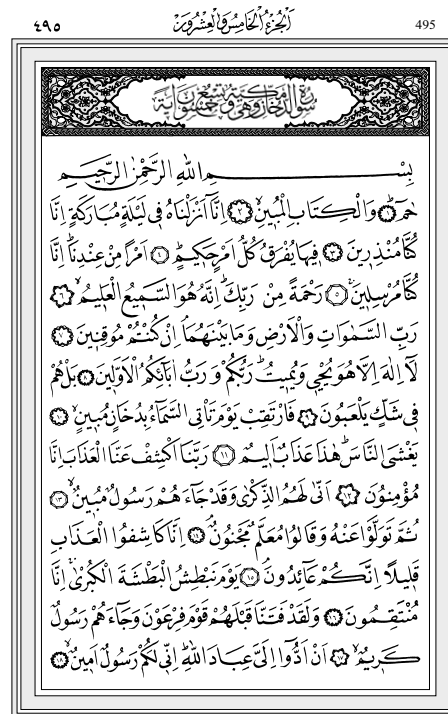 ٤٩٥ اَلْجُزْءُ الْخَامِسُ وَالْعِشْرُونَ 495
سُورَةُ الدُّخَانِ مَكِّيَّةٌ وَهِيَ تِسْعٌ وَخَمْسُونَ اٰيَةً
بِسْمِ اللّٰهِ الرَّحْمٰنِ الرَّحِيمِ
حٰمٓ ﴿١﴾ وَالْكِتَابِ الْمُبِينِ ﴿٢﴾ اِنَّٓا اَنْزَلْنَاهُ فِي لَيْلَةٍ مُبَارَكَةٍ اِنَّا
كُنَّا مُنْذِرِينَ ﴿٣﴾ فِيهَا يُفْرَقُ كُلُّ اَمْرٍ حَكِيمٍ ﴿٤﴾ اَمْرًا مِنْ عِنْدِنَا اِنَّا
كُنَّا مُرْسِلِينَ ﴿٥﴾ رَحْمَةً مِنْ رَبِّكَ اِنَّهُ هُوَ السَّمِيعُ الْعَلِيمُ ﴿٦﴾
رَبِّ السَّمٰوَاتِ وَالْاَرْضِ وَمَا بَيْنَهُمَا اِنْ كُنْتُمْ مُوقِنِينَ ﴿٧﴾
لَٓا اِلٰهَ اِلَّا هُوَ يُحْيِ وَيُمِيتُ رَبُّكُمْ وَرَبُّ اٰبَٓائِكُمُ الْاَوَّلِينَ ﴿٨﴾ بَلْ هُمْ
فِي شَكٍّ يَلْعَبُونَ ﴿٩﴾ فَارْتَقِبْ يَوْمَ تَأْتِي السَّمَٓاءُ بِدُخَانٍ مُبِينٍ ﴿١٠﴾
يَغْشَى النَّاسَ هٰذَا عَذَابٌ اَلِيمٌ ﴿١١﴾ رَبَّنَا اكْشِفْ عَنَّا الْعَذَابَ اِنَّا
مُؤْمِنُونَ ﴿١٢﴾ اَنّٰى لَهُمُ الذِّكْرٰى وَقَدْ جَٓاءَهُمْ رَسُولٌ مُبِينٌ ﴿١٣﴾
ثُمَّ تَوَلَّوْا عَنْهُ وَقَالُوا مُعَلَّمٌ مَجْنُونٌ ﴿١٤﴾ اِنَّا كَاشِفُوا الْعَذَابِ
قَلِيلًا اِنَّكُمْ عَٓائِدُونَ ﴿١٥﴾ يَوْمَ نَبْطِشُ الْبَطْشَةَ الْكُبْرٰى اِنَّا
مُنْتَقِمُونَ ﴿١٦﴾ وَلَقَدْ فَتَنَّا قَبْلَهُمْ قَوْمَ فِرْعَوْنَ وَجَٓاءَهُمْ رَسُولٌ
كَرِيمٌ ﴿١٧﴾ اَنْ اَدُّٓوا اِلَيَّ عِبَادَ اللّٰهِ اِنِّي لَكُمْ رَسُولٌ اَمِينٌ ﴿١٨﴾